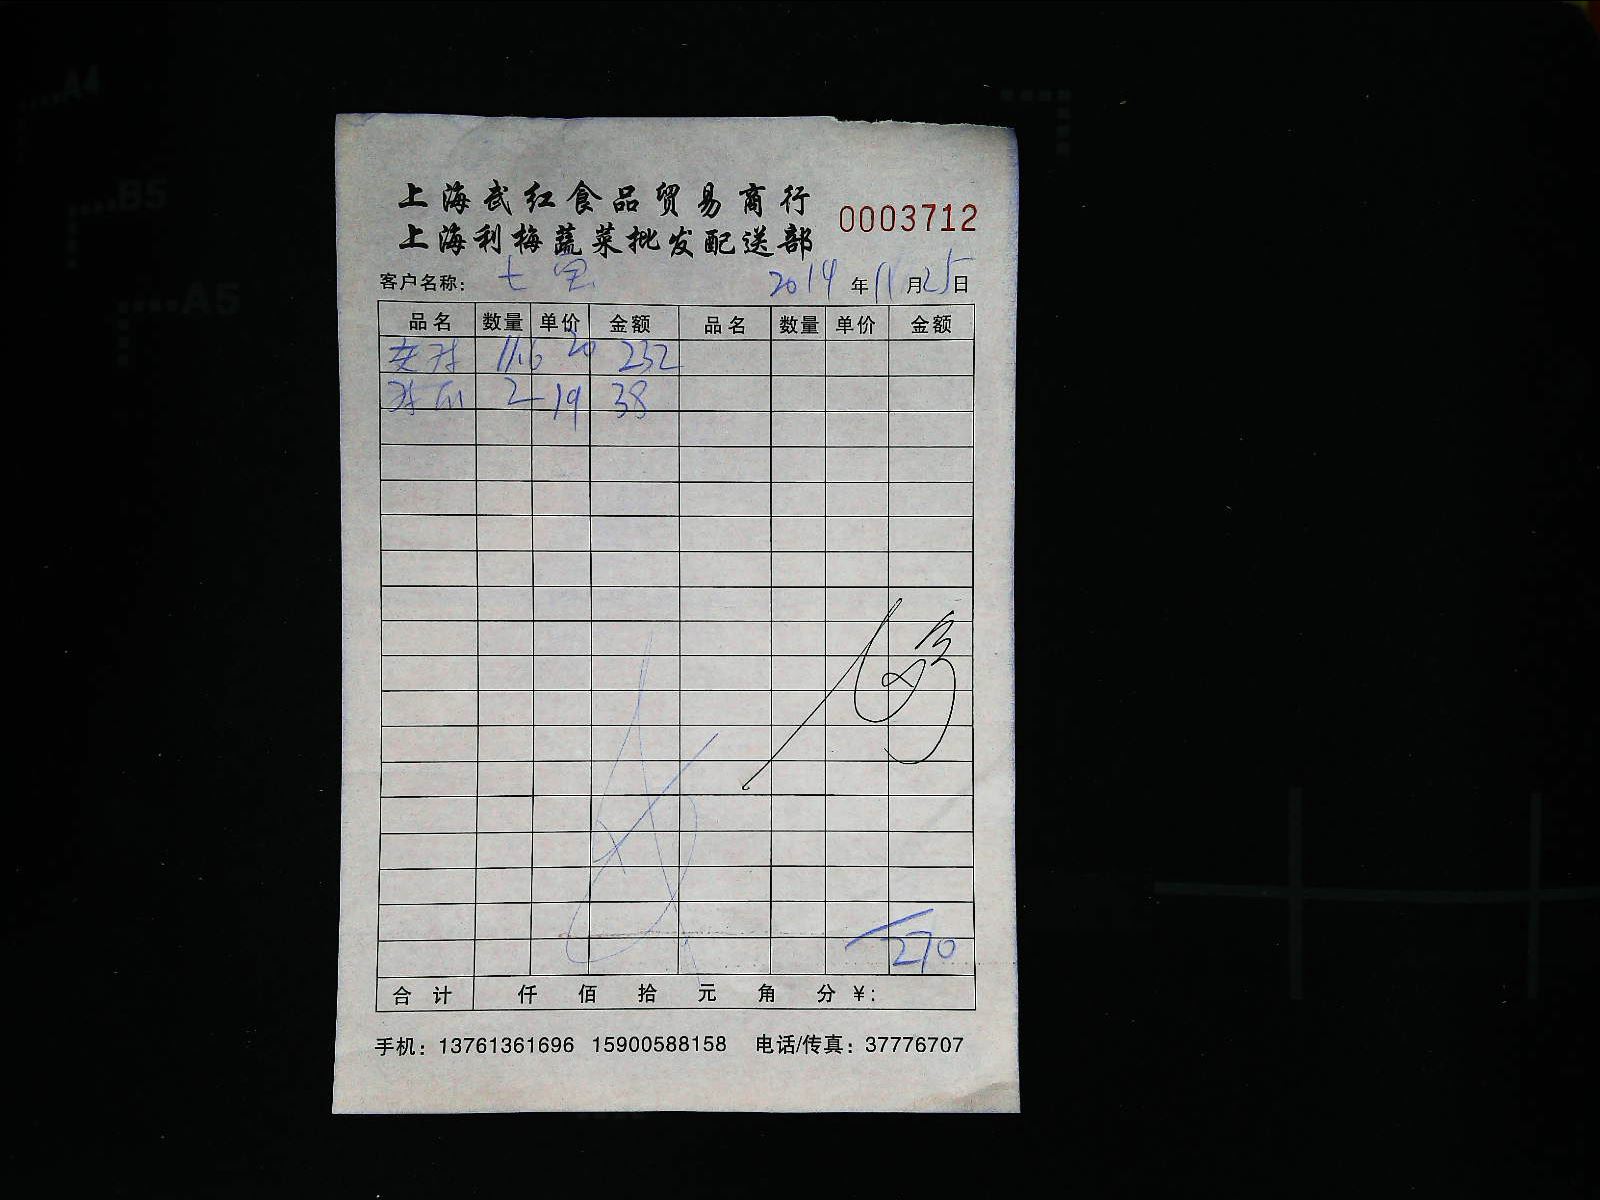 上海武红食品贸易商行
上海利梅蔬菜批发配送部
0003712
客户名称: 七宝 2014年11月25日
品名 数量 单价 金额 品名 数量 单价 金额
11.6 20 232
2 19 38
270
合计 仟 佰 拾 元 角 分 ¥:
手机: 13761361696 15900588158 电话/传真: 37776707
A4
B5
A5